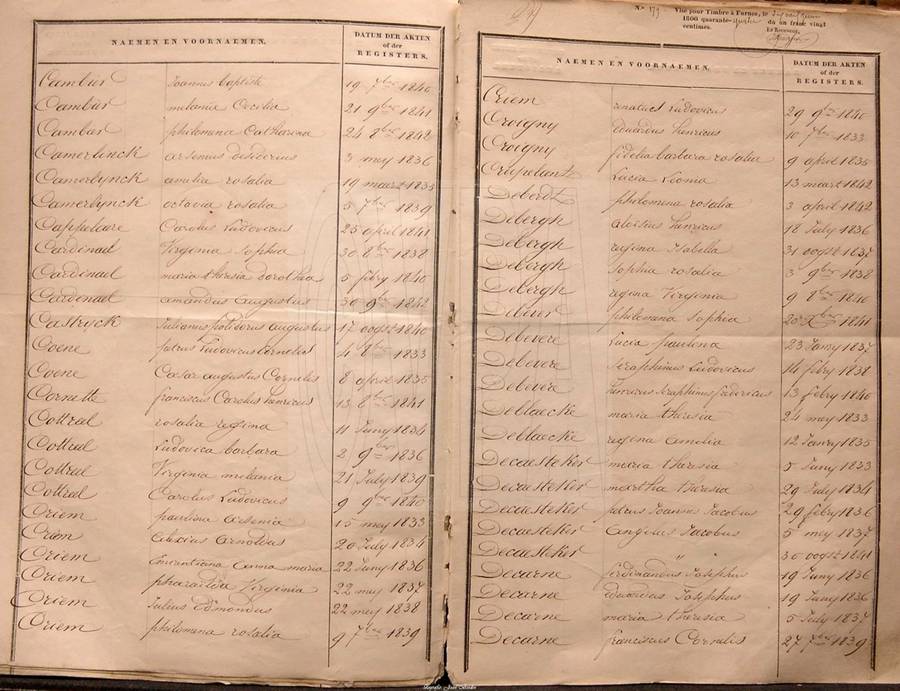 NAEMEN EN VOORNAEMEN. DATUM DER AKTEN
of der
REGISTERS.
Cambier Joannes baptiste 19 7bre 1840
Cambier melania Cecilia 21 9bre 1841
Cambier philomena Catharina 24 8bre 1842
Camerlynck arsenius desiderius 3 mey 1836
Camerlynck amilia rosalia 19 maart 1835
Camerlynck octavia rosalia 5 7bre 1839
Cappelaere Carolus Ludovicus 25 april 1841
Cardinael Virginia Sophia 30 8bre 1838
Cardinael maria theresia dorothea 5 febry 1840
Cardinael amandus augustus 30 9bre 1842
Castryck Julianus augustus 17 oogst 1840
Coene petrus Ludovicus Cornelis 4 8bre 1833
Coene Cæsar augustus Cornelis 8 april 1835
Cornette franciscus Carolus henricus 13 8bre 1841
Cottreel rosalia regina 11 Juny 1834
Cottreel Ludovica barbara 2 9bre 1836
Cottreel Virginia melania 21 July 1839
Cottreel Carolus Ludovicus 9 9bre 1840
Criem paulina Arsenia 15 mey 1833
Criem Alexius Arnoldus 20 July 1834
Criem Emerentiana Anna maria 22 Juny 1836
Criem pharaïlda Virginia 22 mey 1837
Criem Julius Edmondus 22 mey 1838
Criem philomena rosalia 9 7bre 1839
No 179 Visé pour Timbre à Furnes, le
1800 quarante- dû un franc vingt
centimes. Le Receveur,
NAEMEN EN VOORNAEMEN. DATUM DER AKTEN
of der
REGISTERS.
Criem renatus Ludovicus 29 9bre 1840
Croigny eduardus henricus 10 7bre 1833
Croigny fidelia barbara rosalia 9 april 1835
Crupelant Lucia Leonia 13 maart 1842
Deberdt philomena rosalia 3 april 1842
Debergh aloïsius henricus 18 July 1836
Debergh regina Isabella 31 oogst 1837
Debergh Sophia rosalia 3 9bre 1838
Debergh regina Virginia 9 8bre 1840
Debever philomena Sophia 20 Xbre 1841
Debevere Lucia paulina 23 Janry 1837
Debevere Seraphinus Ludovicus 14 febry 1838
Debevere henricus Seraphinus fredericus 13 febry 1840
Deblaecke maria theresia 24 mey 1833
Deblaecke regina Amelia 12 Janry 1835
Decaesteker maria theresia 5 Juny 1833
Decaesteker martha theresia 29 July 1834
Decaesteker petrus Joannes Jacobus 29 febry 1836
Decaesteker Angelus Jacobus 5 mey 1837
Decaesteker " " 30 oogst 1841
Decarne ferdinandus Josephus 19 Juny 1836
Decarne eduardus Josephus 19 Juny 1836
Decarne maria theresia 5 July 1837
Decarne franciscus Cornelis 27 7bre 1839